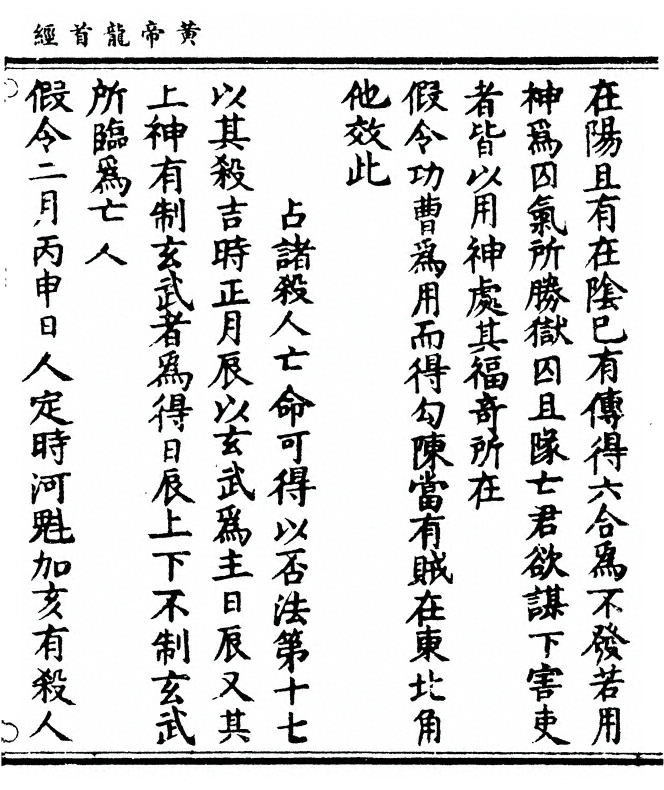 黃帝龍首經
在陽且有在陰巳有傳得六合爲不發若用
神爲囚氣所勝獄囚且隊亡君欲謀下害吏
者皆以用神處其福竒所在
假令功曹爲用而得勾陳當有賊在東北角
他效此
占諸殺人亡命可得以否法第十七
以其殺吉時正月辰以玄武爲主日辰又其
上神有制玄武者爲得日辰上下不制玄武
所臨爲亡人
假令二月丙申日人定時河魁加亥有殺人